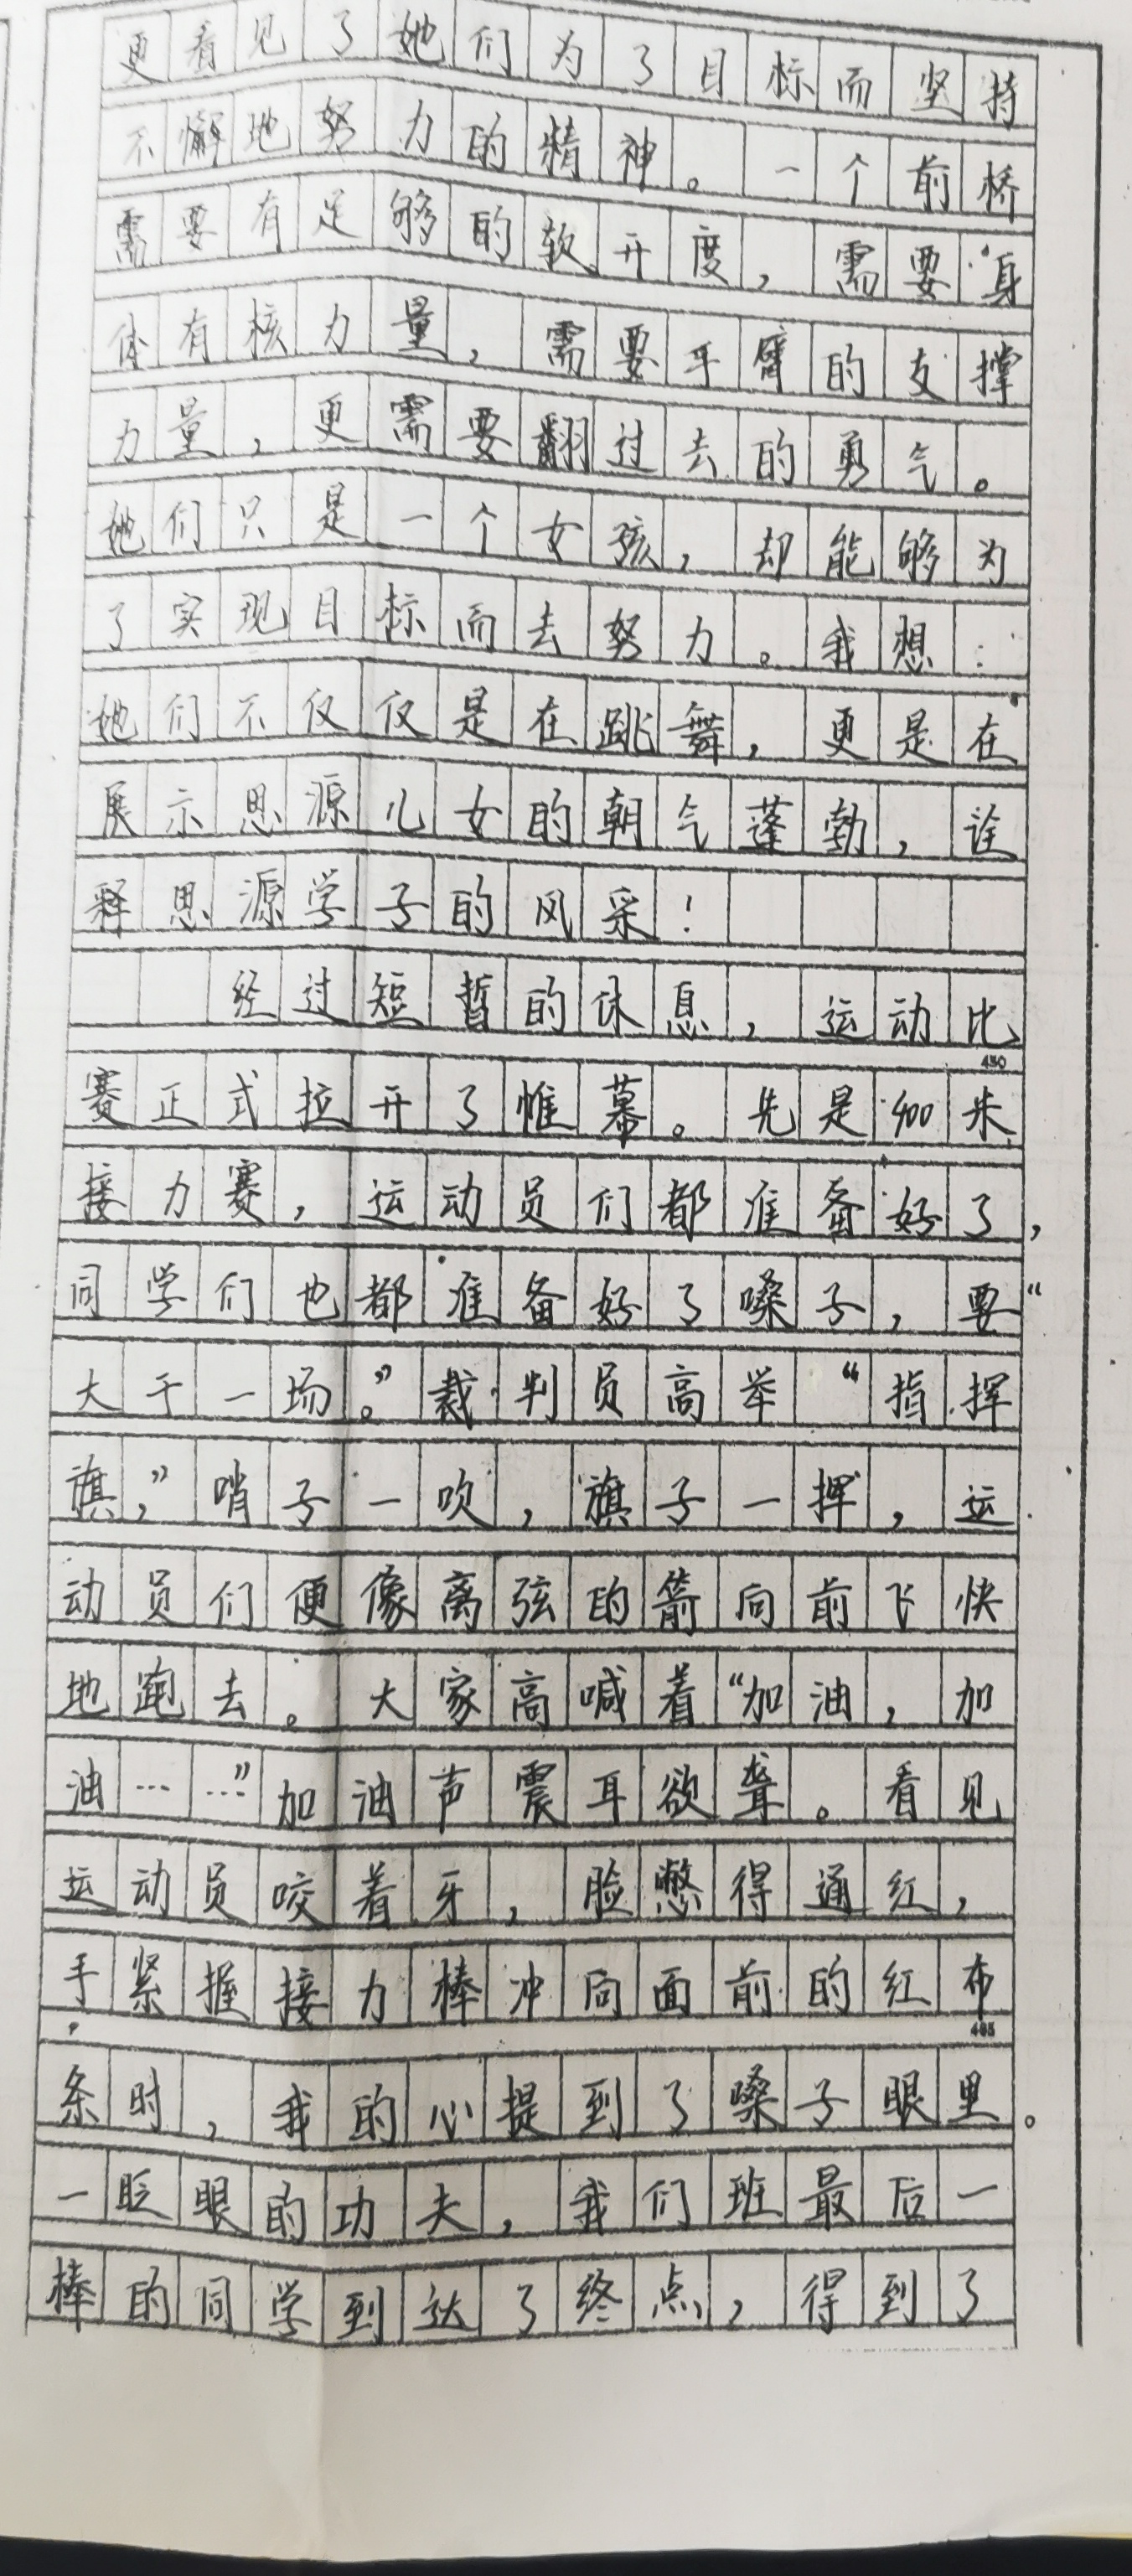 更看见了她们为了目标而坚持
不懈地努力的精神。一个前桥
需要有足够的软开度,需要身
体有核力量,需要手臂的支撑
力量,更需要翻过去的勇气。
她们只是一个女孩,却能够为
了实现目标而去努力。我想:
她们不仅仅是在跳舞,更是在
展示思源儿女的朝气蓬勃,诠
释思源学子的风采!
经过短暂的休息,运动比
450
赛正式拉开了帷幕。先是400米
接力赛,运动员们都准备好了,
同学们也都准备好了嗓子,要“
大干一场。”裁判员高举“指挥
旗,”哨子一吹,旗子一挥,运
动员们便像离弦的箭向前飞快
地跑去。大家高喊着“加油,加
油……”加油声震耳欲聋。看见
运动员咬着牙,脸憋得通红,
手紧握接力棒冲向面前的红布
条时,我的心提到了嗓子眼里。
一眨眼的功夫,我们班最后一
棒的同学到达了终点,得到了